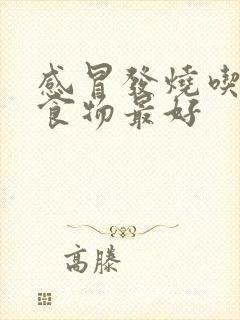 感冒發燒喫
食物最好
高滕